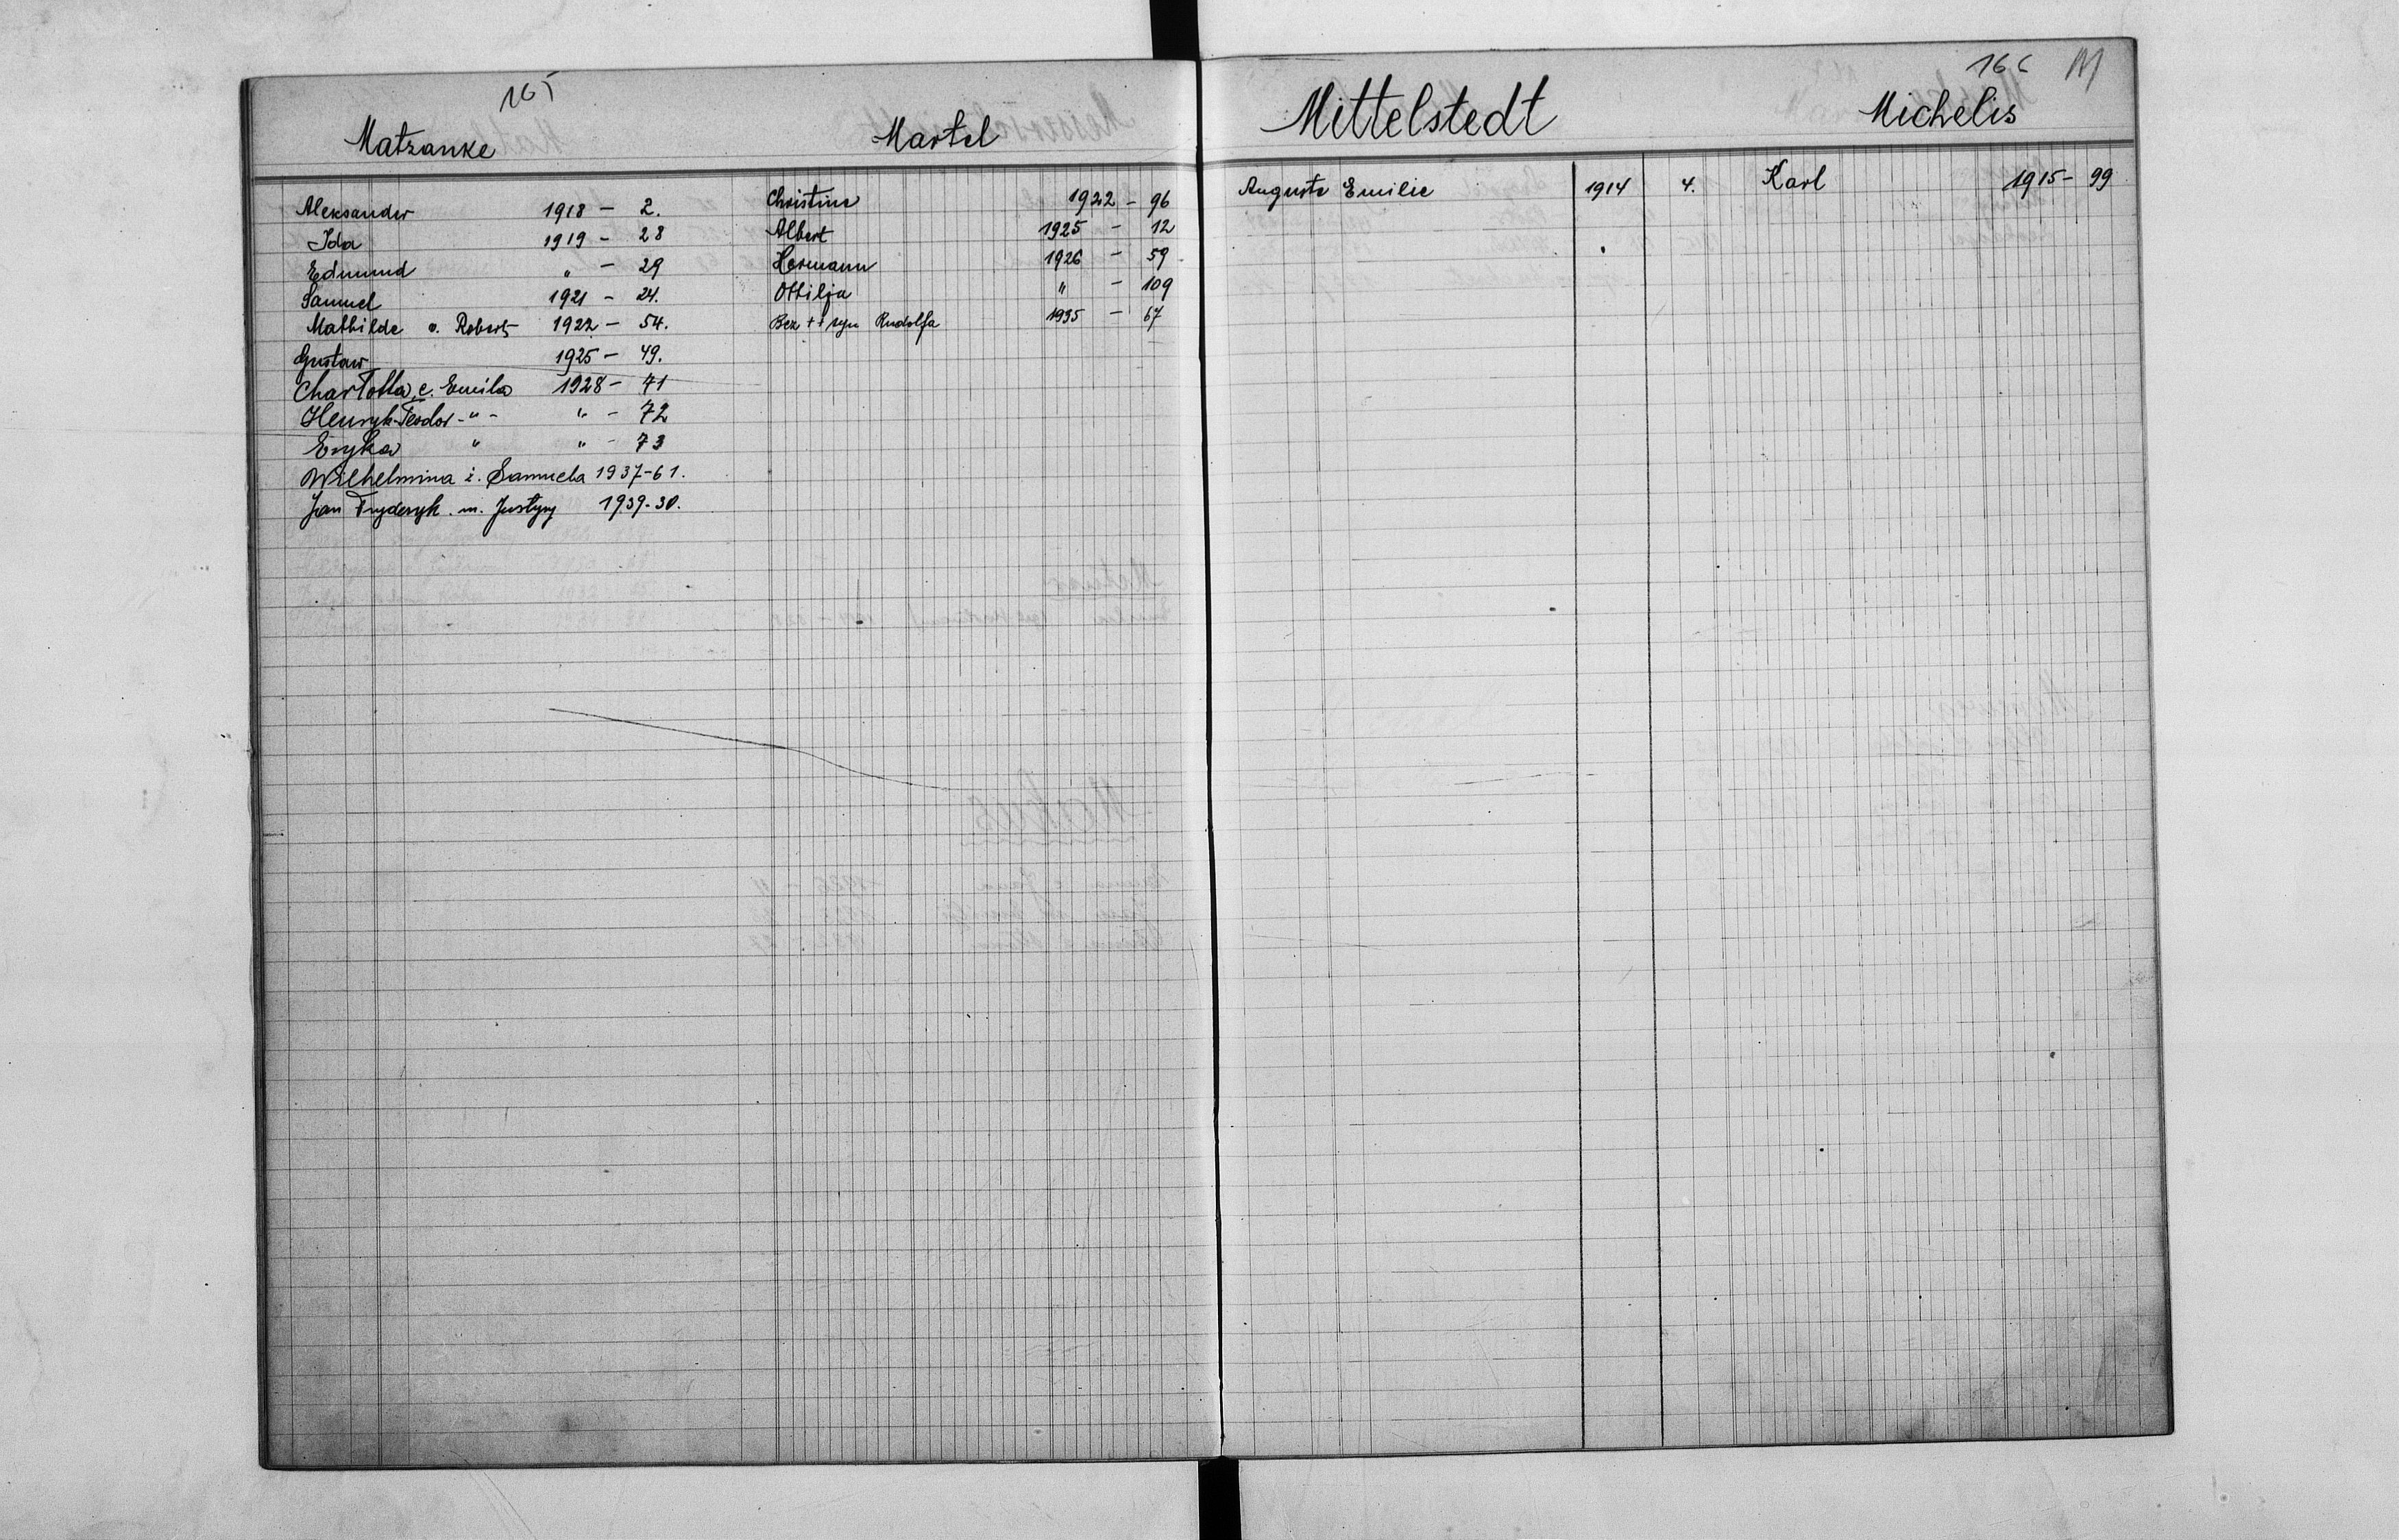 165
Matzanke
Aleksander 1918 - 2.
Ida 1919 - 28
Edmund " - 29
Samuel 1921 - 24.
Mathilde v. Robert 1922 - 54.
Gustaw 1925 - 49.
Charlotta c. Emila 1928 - 71
Henryk-Teodor - " - " - 72
Eryka " " - 73
Wilhelmina ż. Samuela 1937-61.
Jan Fryderyk m. Justyny 1939-30.
Martel
Christine 1922 - 96
Albert 1925 - 12
Hermann 1926 - 59
Ottilja " - 109
Bez ++ syn Rudolfa 1935 - 67
166 M
Mittelstedt
Auguste Emilie 1914 4.
Michelis
Karl 1915 - 99